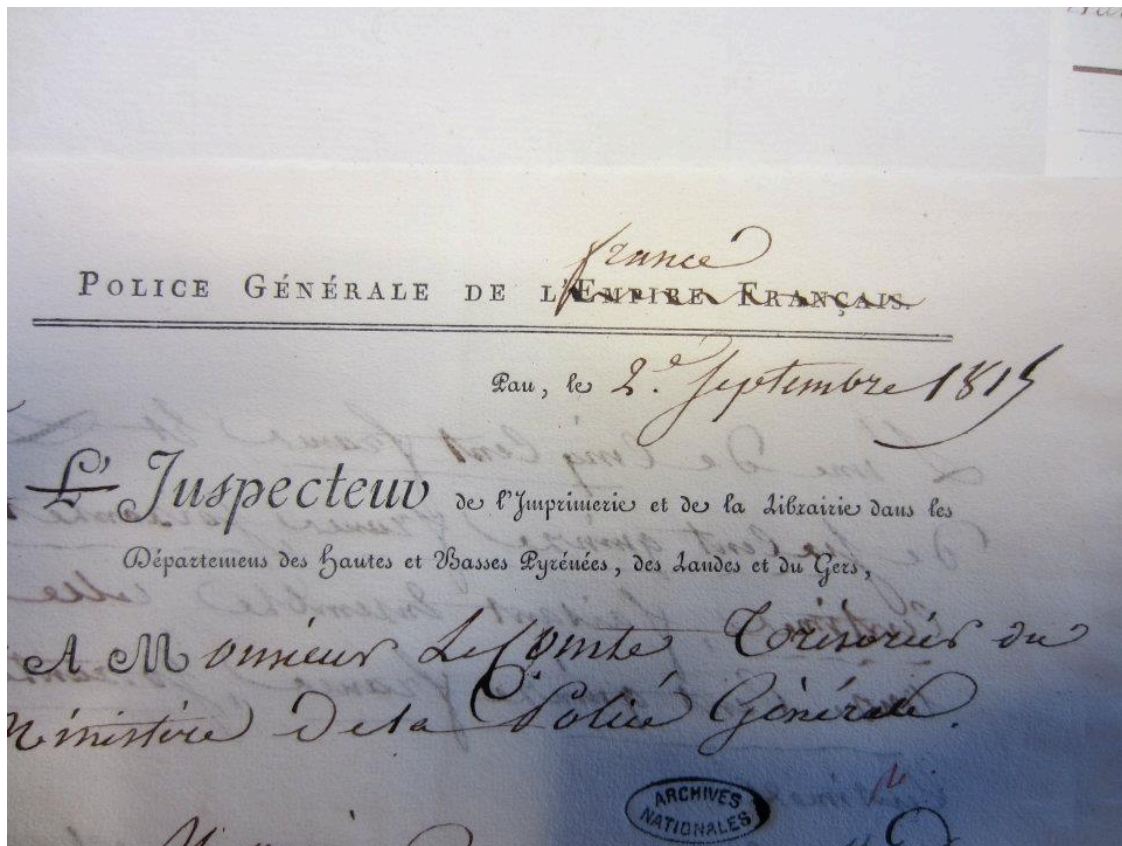 france
Police Générale de l'Empire Français.
Pau, le 2.e Septembre 1815
L'Inspecteur de l'Imprimerie et de la Librairie dans les
Départemens des Hautes et Basses Pyrénées, des Landes et du Gers,
A Monsieur Le Comte Trésorier du
Ministère De la Police Générale.
ARCHIVES
NATIONALES